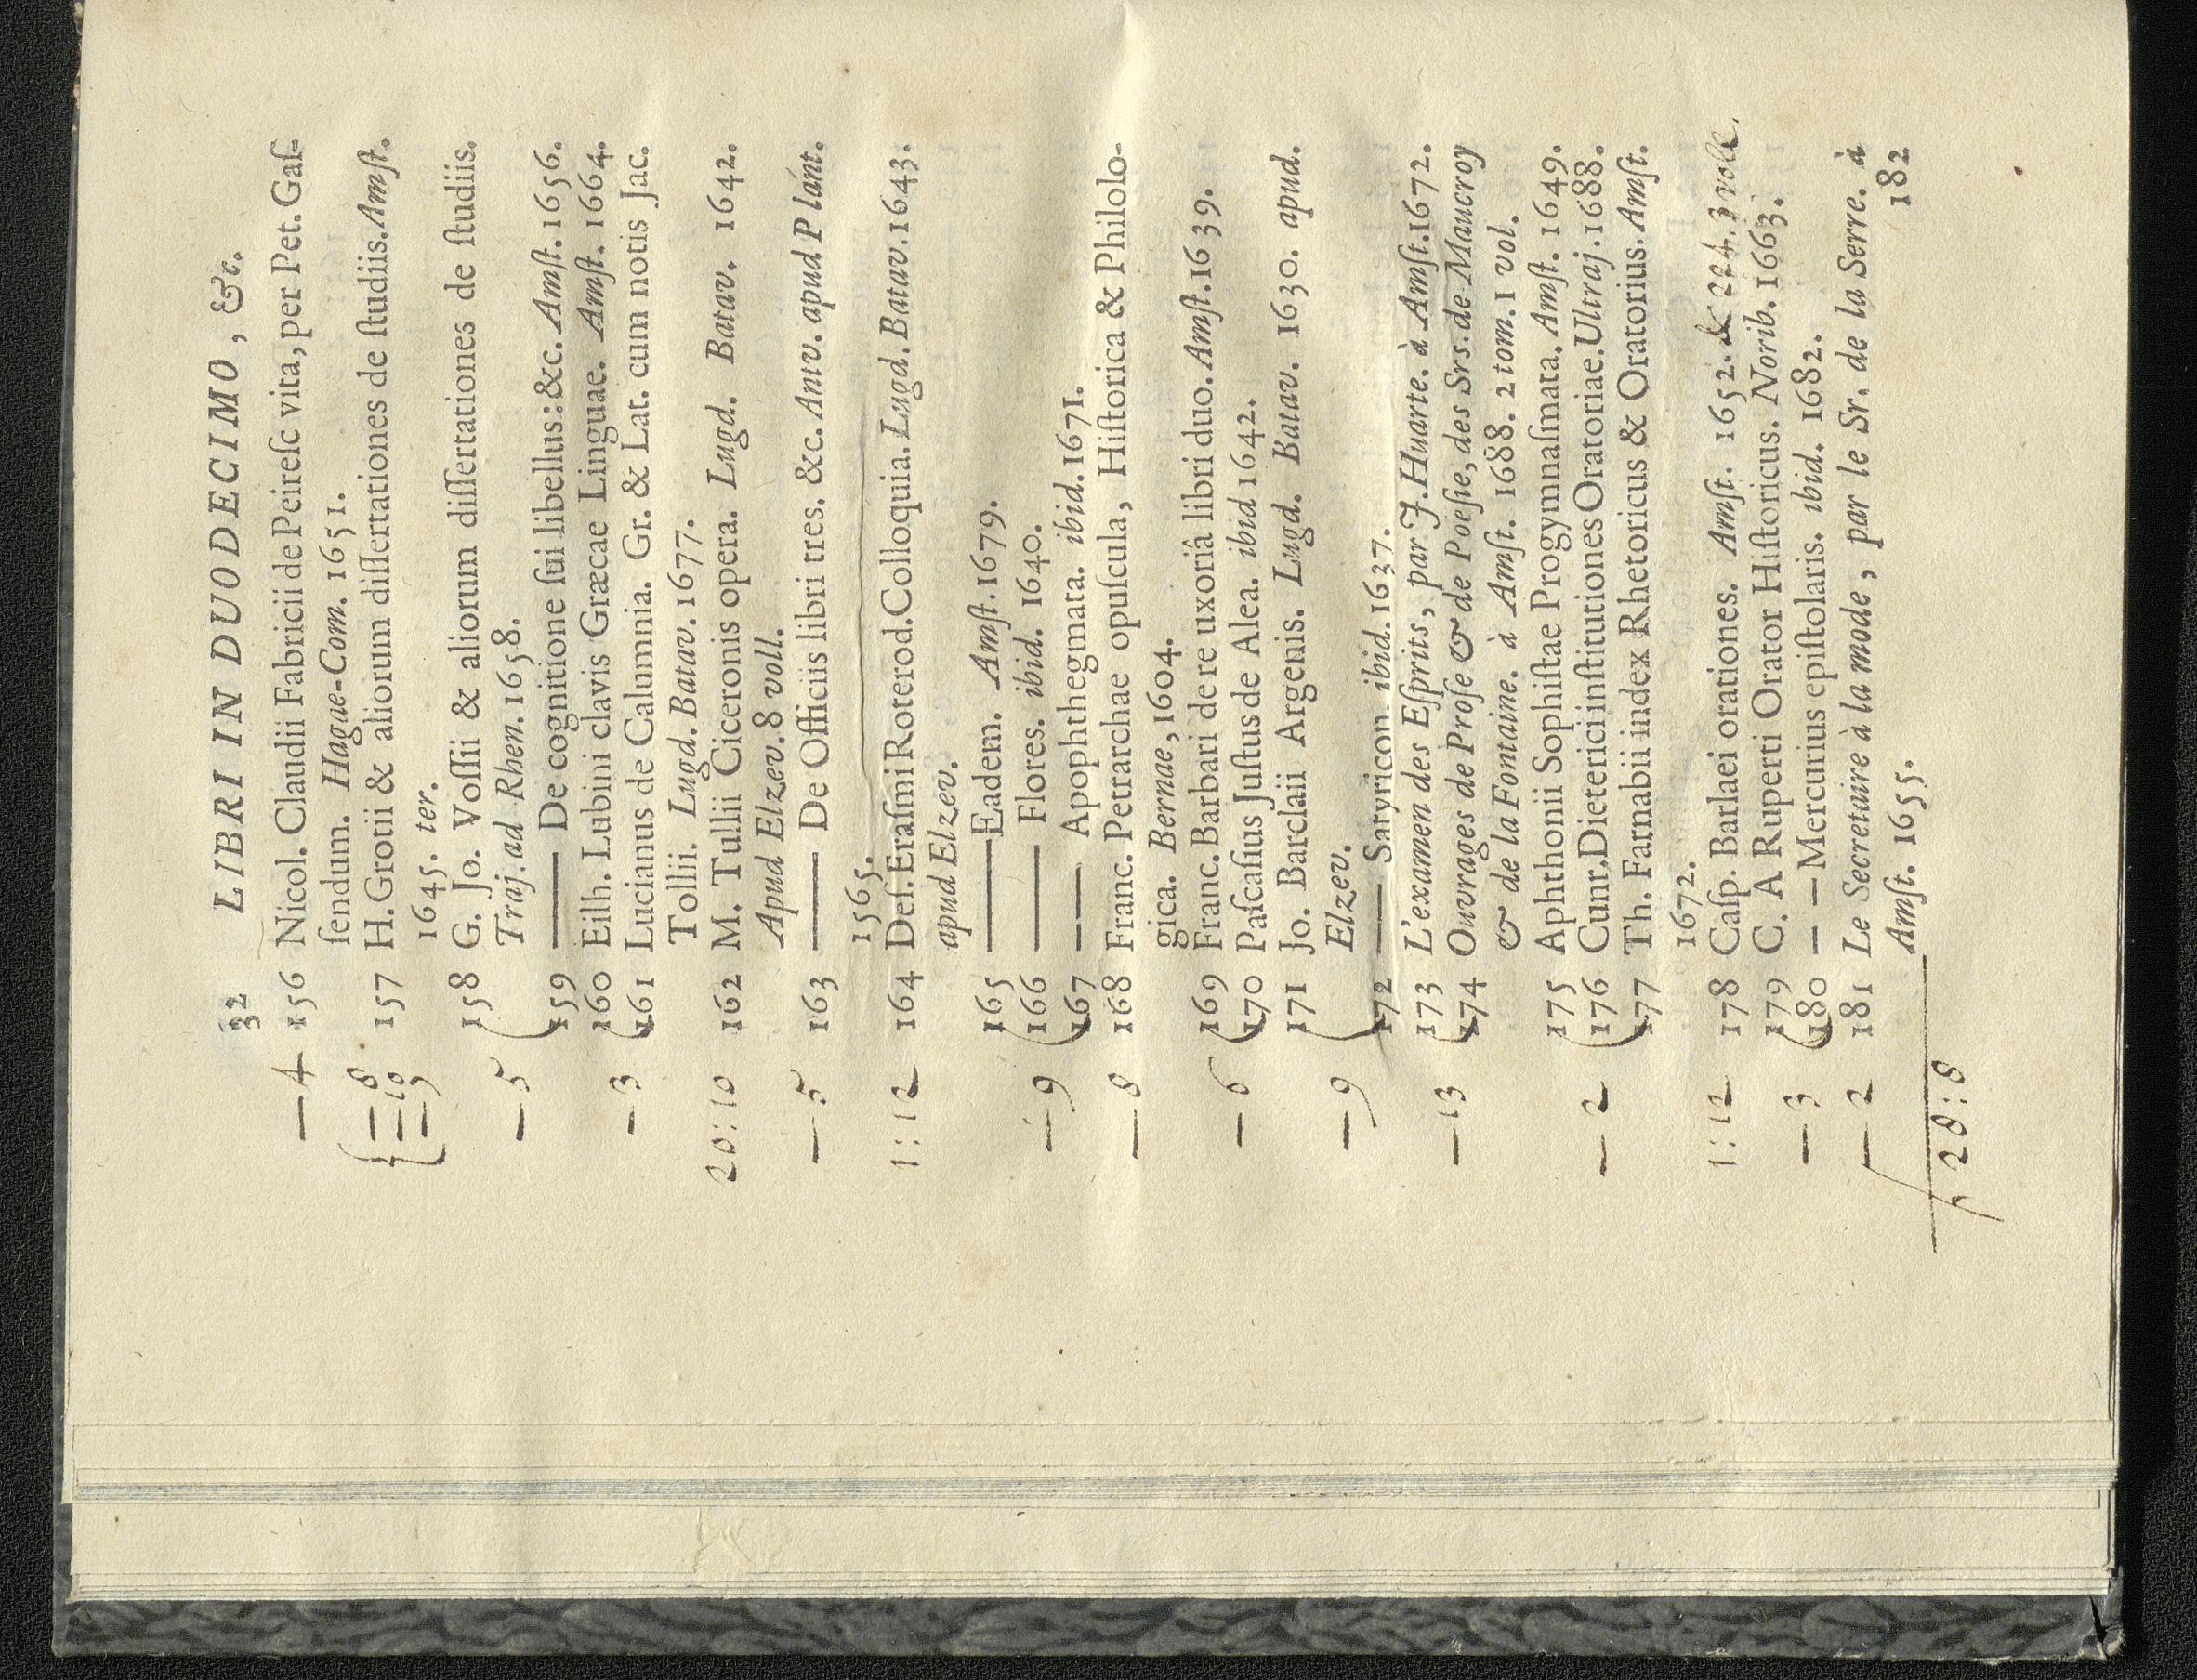 32 LIBRI IN DUODECIMO, &c.
— 4 156 Nicol. Claudii Fabricii de Peireſc vita, per Pet. Gaſ-
ſendum. Hagae-Com. 1651.
— 8 157 H. Grotii & aliorum diſſertationes de ſtudiis. Amſt.
— 10
— 9 1645. ter.
158 G. Jo. Voſſii & aliorum diſſertationes de ſtudiis.
— 5 Traj. ad Rhen. 1658.
159 —— De cognitione ſui libellus: &c. Amſt. 1656.
160 Eilh. Lubini clavis Græcae Linguae. Amſt. 1664.
— 3 161 Lucianus de Calumnia. Gr. & Lat. cum notis Jac.
Tollii. Lugd. Batav. 1677.
20:10 162 M. Tullii Ciceronis opera. Lugd. Batav. 1642.
Apud Elzev. 8 voll.
— 5 163 —— De Officiis libri tres. &c. Antv. apud Plant.
1565.
1:12 164 Deſ. Eraſmi Roterod. Colloquia. Lugd. Batav. 1643.
apud Elzev.
165 —— Eadem. Amſt. 1679.
— 9 166 —— Flores. ibid. 1640.
167 — — Apophthegmata. ibid. 1671.
— 8 168 Franc. Petrarchae opuſcula, Hiſtorica & Philolo-
gica. Bernae, 1604.
169 Franc. Barbari de re uxoriâ libri duo. Amſt. 1639.
— 6 170 Paſcaſius Juſtus de Alea. ibid 1642.
171 Jo. Barclaii Argenis. Lugd. Batav. 1630. apud.
— 9 Elzev.
172 —— Satyricon. ibid. 1637.
173 L'examen des Eſprits, par J. Huarte. à Amſt. 1672.
— 13 174 Ouvrages de Proſe & de Poeſie, des Srs. de Maucroy
& de la Fontaine. à Amſt. 1688. 2 tom. 1 vol.
175 Aphthonii Sophiſtae Progymnaſmata. Amſt. 1649.
— 2 176 Cunr. Dieterici inſtitutiones Oratoriae. Ultraj. 1688.
177 Th. Farnabii index Rhetoricus & Oratorius. Amſt.
1672.
1:12 178 Caſp. Barlaei orationes. Amſt. 1652. & 224. 3 voll.
179 C. A Ruperti Orator Hiſtoricus. Norib. 1663.
— 3 180 — — Mercurius epiſtolaris. ibid. 1682.
— 2 181 Le Secretaire à la mode, par le Sr. de la Serre. à
Amſt. 1655. 182
28:8